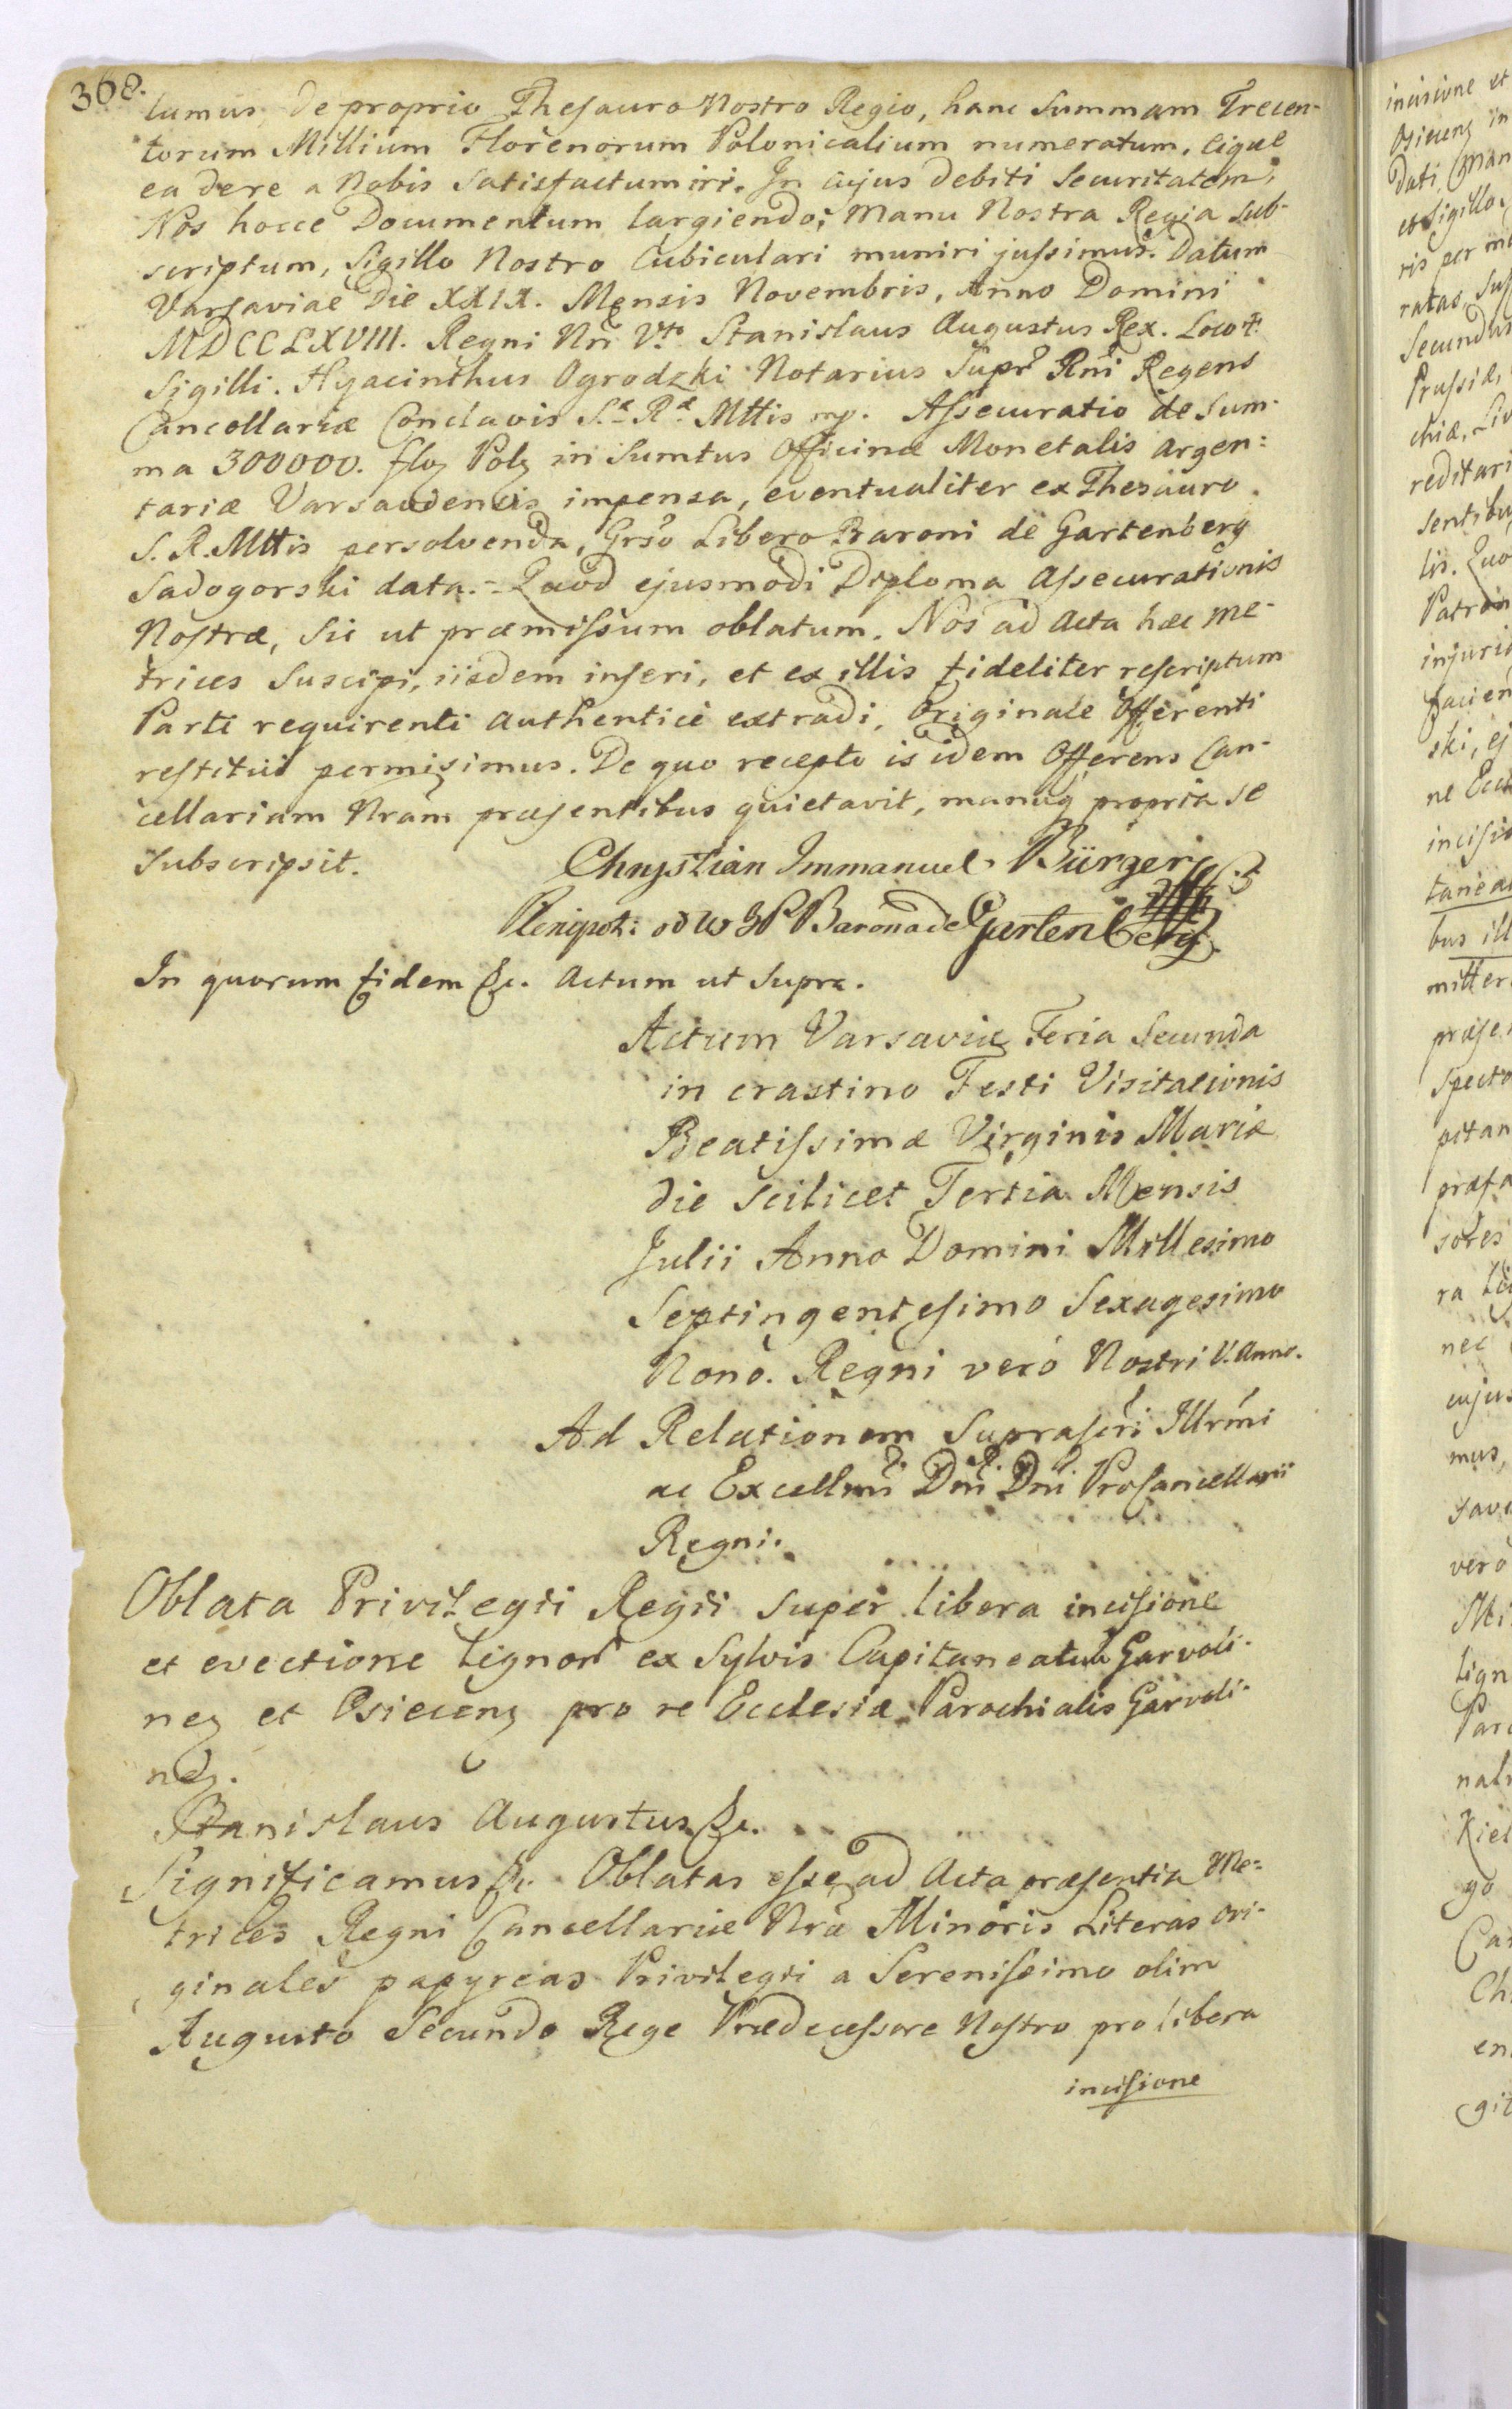 368.
lumus, de proprio Thesauro Nostro Regio, hanc Summam Trecen-
torum Millium Florenorum Polonicalium numeratum, eique
ea de re a Nobis Satisfactum iri. In cujus debiti Securitatem,
Nos hocce Documentum largiendo, Manu Nostra Regia Sub-
scriptum, Sigillo Nostro Cubiculari muniri jussimus. Datum
Varsaviae Die XXIX. Mensis Novembris, Anno Domini
MDCCLXVIII. Regni Nri Vto. Stanislaus Augustus Rex. Locus
Sigilli. Hyacinthus Ogrodzki Notarius Supr. Rni Regens
Cancellariæ Conclavis S.æ R.æ Mttis mp. Assecuratio de Sum-
ma 300000. flog Polg in Sumtus Officinæ Monetalis argen=
tariæ Varsaviensis impensa, eventualiter ex Thesauro
S. R. Mttis persolvenda, Grso Libero Baroni de Gartenberg
Sadogorski data. - Quod ejusmodi Diploma Assecurationis
Nostræ, Sic ut præmissum oblatum. Nos ad Acta hæc Me-
trices Suscipi, iisdem inseri, et ex illis fideliter rescriptum
Parti requirenti authentice extradi, Originale Offerenti
restitui permisimus. De quo recepto is idem Offerens Can-
cellariam Nram præsentibus quietavit, manuq propria se
subscripsit.
Chrystian Immanuel Bürger
Plenipot: od W JP Barona de Gartenberg
In quorum fidem &c. Actum ut Supra.
Actum Varsaviæ Feria Secunda
in crastino Festi Visitationis
Beatissimæ Virginis Mariæ
die scilicet Tertia Mensis
Julii Anno Domini Millesimo
Septingentesimo Sexagesimo
Nono. Regni vero Nostri V. Anno.
Ad Relationem Suprascri Illrmi
ac Excellmi Dni Dni Procancellarii
Regni.
Oblata Privilegii Regii super libera incisione
et evectione lignor ex Sylvis Capitaneatuu Garvoli-
neg et Osieceng pro re Ecclesiæ Parochialis Garvoli-
neg.
Stanislaus Augustus &c.
Significamus &c. Oblatas esse ad Acta præsentia Me=
trices Regni Cancellariæ Nræ Minoris Literas ori-
ginales papyreas Privilegii a Serenissimo olim
Augusto Secundo Rege Prædecessore Nostro pro libera
incisione